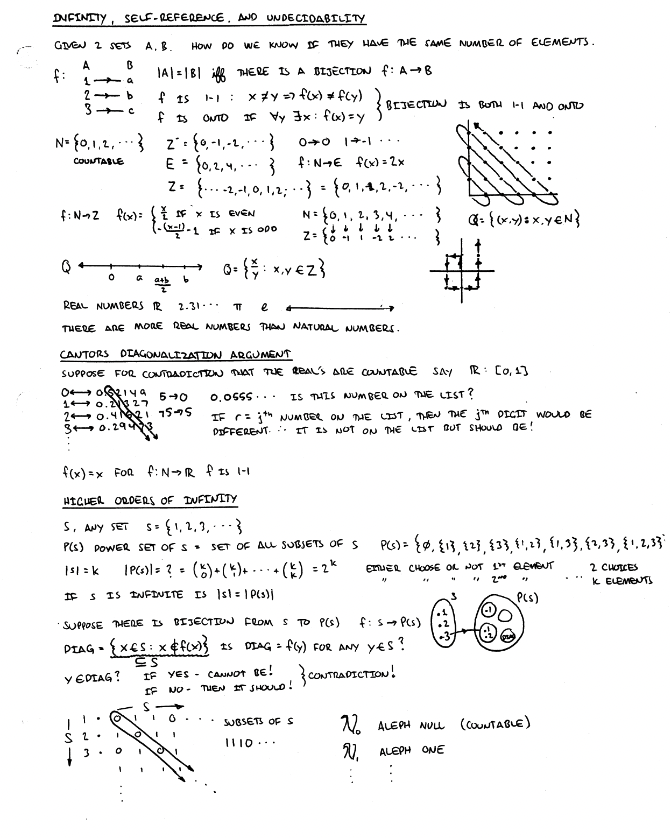 INFINITY, SELF-REFERENCE, AND UNDECIDABILITY
GIVEN 2 SETS A, B. HOW DO WE KNOW IF THEY HAVE THE SAME NUMBER OF ELEMENTS.
A B
f: 1 → a |A|=|B| iff THERE IS A BIJECTION f: A→B
2 → b f IS 1-1 : x ≠ y => f(x) ≠ f(y)
3 → c f IS ONTO IF ∀y ∃x : f(x)=y } BIJECTION IS BOTH 1-1 AND ONTO
N = {0,1,2, ···} Z⁻ = {0,-1,-2, ···} 0→0 1→-1 ···
COUNTABLE E = {0,2,4, ··· } f: N→E f(x)=2x
Z = {··· -2,-1,0,1,2, ···} = {0,1,-1,2,-2, ···}
f: N→Z f(x) = { x/2 IF x IS EVEN N = {0, 1, 2, 3, 4, ··· } Q = {(x,y) : x,y ∈ N}
-(x-1)/2 -1 IF x IS ODD Z = {0 -1 1 -2 2 ··· }
Q 0 a (a+b)/2 b Q = {x/y : x,y ∈ Z}
REAL NUMBERS ℝ 2.31··· π e
THERE ARE MORE REAL NUMBERS THAN NATURAL NUMBERS.
CANTORS DIAGONALIZATION ARGUMENT
SUPPOSE FOR CONTRADICTION THAT THE REAL'S ARE COUNTABLE SAY ℝ : [0,1]
0 ↔ 0.52149 5→0 0.0555··· IS THIS NUMBER ON THE LIST?
1 ↔ 0.21327 ¬5→5 IF r = jth NUMBER ON THE LIST, THEN THE jth DIGIT WOULD BE
2 ↔ 0.41621 DIFFERENT ∴ IT IS NOT ON THE LIST BUT SHOULD BE!
3 ↔ 0.29493
f(x)=x FOR f: N→ℝ f IS 1-1
HIGHER ORDERS OF INFINITY
S, ANY SET S = {1, 2, 3, ···}
P(S) POWER SET OF S = SET OF ALL SUBSETS OF S P(S) = {∅, {1}, {2}, {3}, {1,2}, {1,3}, {2,3}, {1,2,3}
|S|=k |P(S)| = ? = (k 0) + (k 1) + ··· + (k k) = 2^k EITHER CHOOSE OR NOT 1st ELEMENT 2 CHOICES
" " " " 2nd " ··· k ELEMENTS
IF S IS INFINITE IS |S| = |P(S)|
SUPPOSE THERE IS BIJECTION FROM S TO P(S) f: S→P(S)
S P(S)
·1 ·2 ·3 ·1 ·1 ·2
DIAG = {x∈S : x∉f(x)} IS DIAG = f(y) FOR ANY y∈S?
⊆ S
y∈DIAG? IF YES - CANNOT BE!
IF NO - THEN IT SHOULD! } CONTRADICTION!
S →
1 · 0 1 1 0 ···· SUBSETS OF S ℵ₀ ALEPH NULL (COUNTABLE)
S 2 · 1 0 1 1 1110 ···
3 · 0 1 0 1 ℵ₁ ALEPH ONE
1 1 1